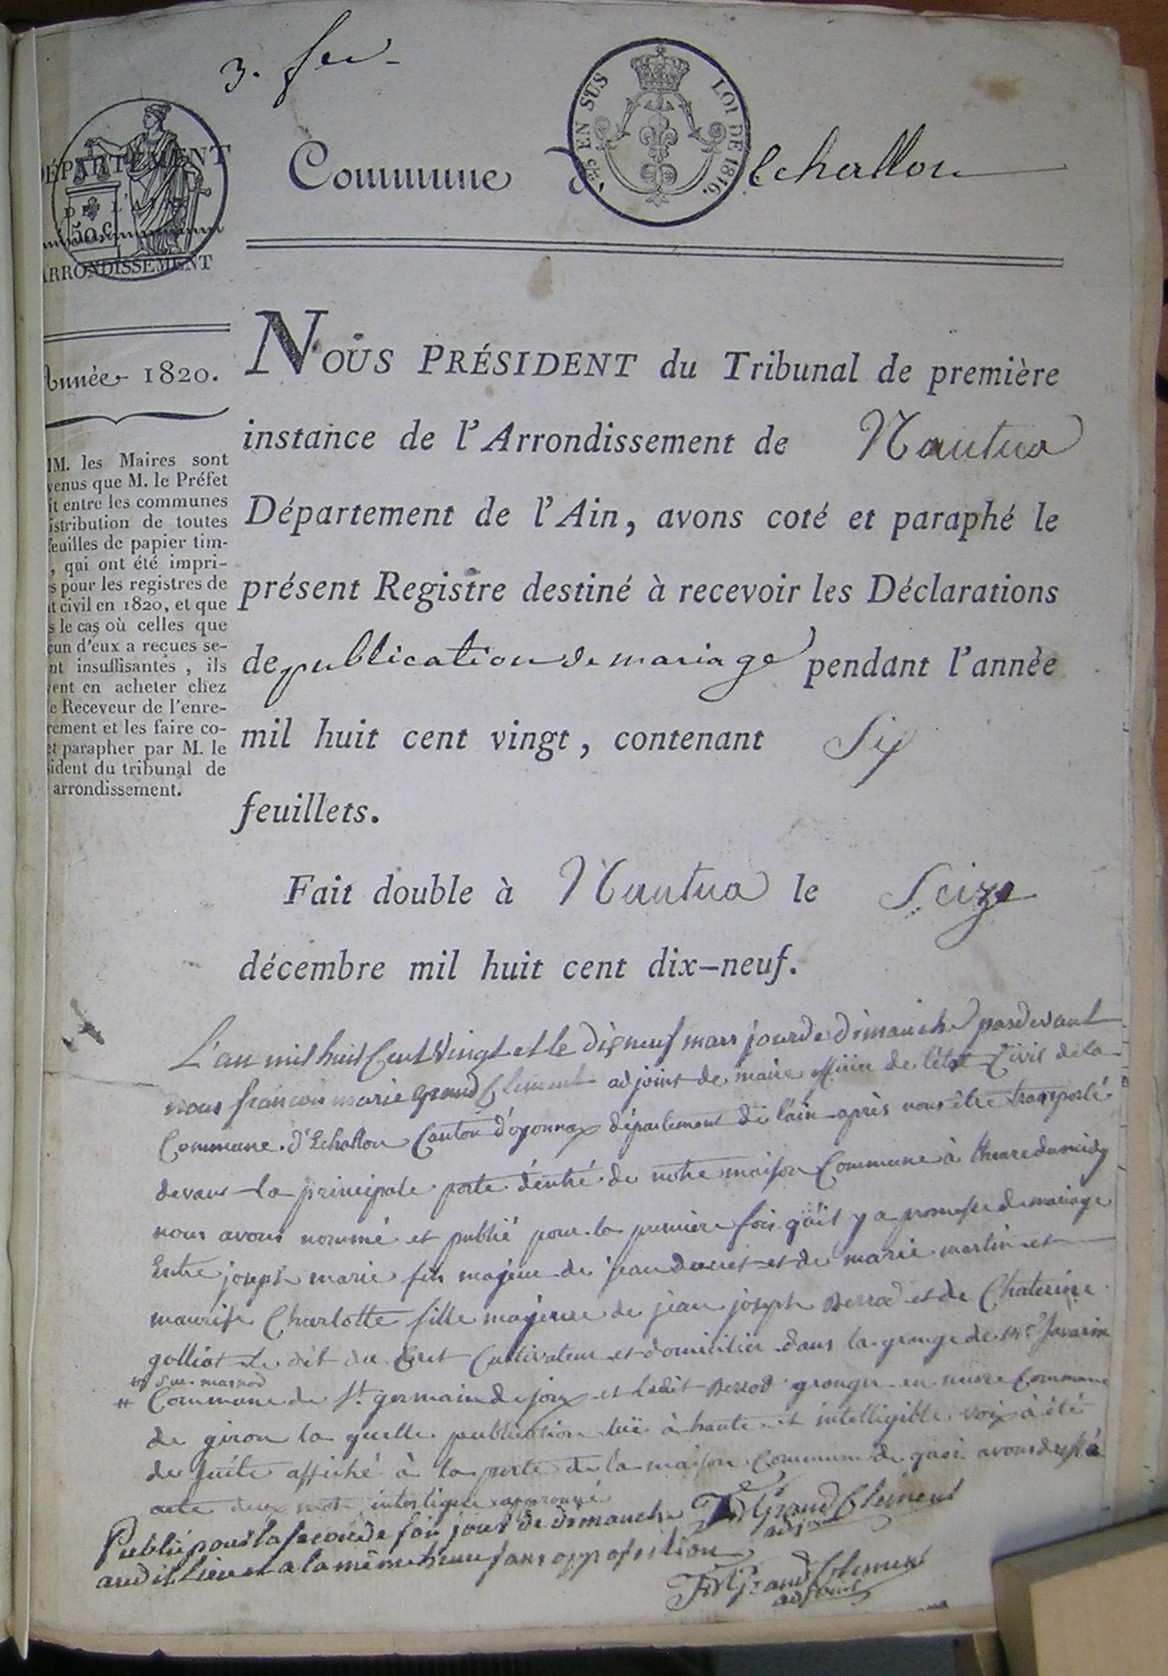 3. feu
DÉPARTEMENT
DE L'AIN
50 c
ARRONDISSEMENT
EN SUS LOI DE 1816.
Commune d Echallon
Année 1820.
MM. les Maires sont
venus que M. le Préfet
it entre les communes
istribution de toutes
feuilles de papier tim-
, qui ont été impri-
s pour les registres de
t civil en 1820, et que
s le cas où celles que
cun d'eux a reçues se-
nt insuffisantes, ils
vent en acheter chez
e Receveur de l'enre-
rement et les faire co-
et parapher par M. le
sident du tribunal de
arrondissement.
NOUS PRÉSIDENT du Tribunal de première
instance de l'Arrondissement de Nantua
Département de l'Ain, avons coté et paraphé le
présent Registre destiné à recevoir les Déclarations
de publication de mariage pendant l'année
mil huit cent vingt, contenant Six
feuillets.
Fait double à Nantua le Seize
décembre mil huit cent dix-neuf.
L'an mil huit Cent Vingt et le dix neuf mars jour de dimanche pardevant
nous françois marie Grand Clement adjoint de maire officier de l'état Civil de la
Commune d'Echallon Canton d'oyonnax département de l'ain après nous être transporté
devant la principale porte d'entré de notre maison Commune à l'heure de midy
nous avons nommé et publié pour la première fois qu'il y a promesse de mariage
Entre joseph marie fils majeur de jean ducret et de marie martin et
maurise Charlotte fille majeure de jean joseph Berrod et de Chaterine
golliot le dit du Cret Cultivateur et domicilier dans la grange de mr Savarin
# sur marnod
# Commune de St. germain de joux et ledit Berrod granger en nivre Commune
de giron la quelle publication lui à haute et intelligible voix à été
de suite affiché à la porte de la maison Commune de quoi avons dressé
acte deux mots interligne approuvé
FM Grand Clement
adjoint
Publié pour la seconde fois jour de dimanche
audit lieu et a la même heure sans opposition
FM Grand Clement
adjoint